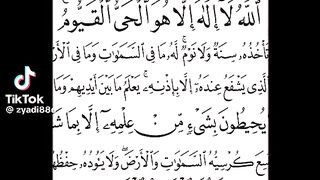 اَللّٰهُ لَآ اِلٰهَ اِلَّا هُوَ الْحَىُّ الْقَيُّوْمُ
تَأْخُذُهٗ سِنَةٌ وَّلَا نَوْمٌ لَهٗ مَا فِى السَّمٰوٰتِ وَمَا فِى الْاَرْ
الَّذِىْ يَشْفَعُ عِنْدَهٗٓ اِلَّا بِاِذْنِهٖ يَعْلَمُ مَا بَيْنَ اَيْدِيْهِمْ وَمَا
يُحِيْطُوْنَ بِشَىْءٍ مِّنْ عِلْمِهٖٓ اِلَّا بِمَا شَ
سِعَ كُرْسِيُّهُ السَّمٰوٰتِ وَالْاَرْضَ وَلَا يَئُوْدُهٗ حِفْظُهُ
TikTok